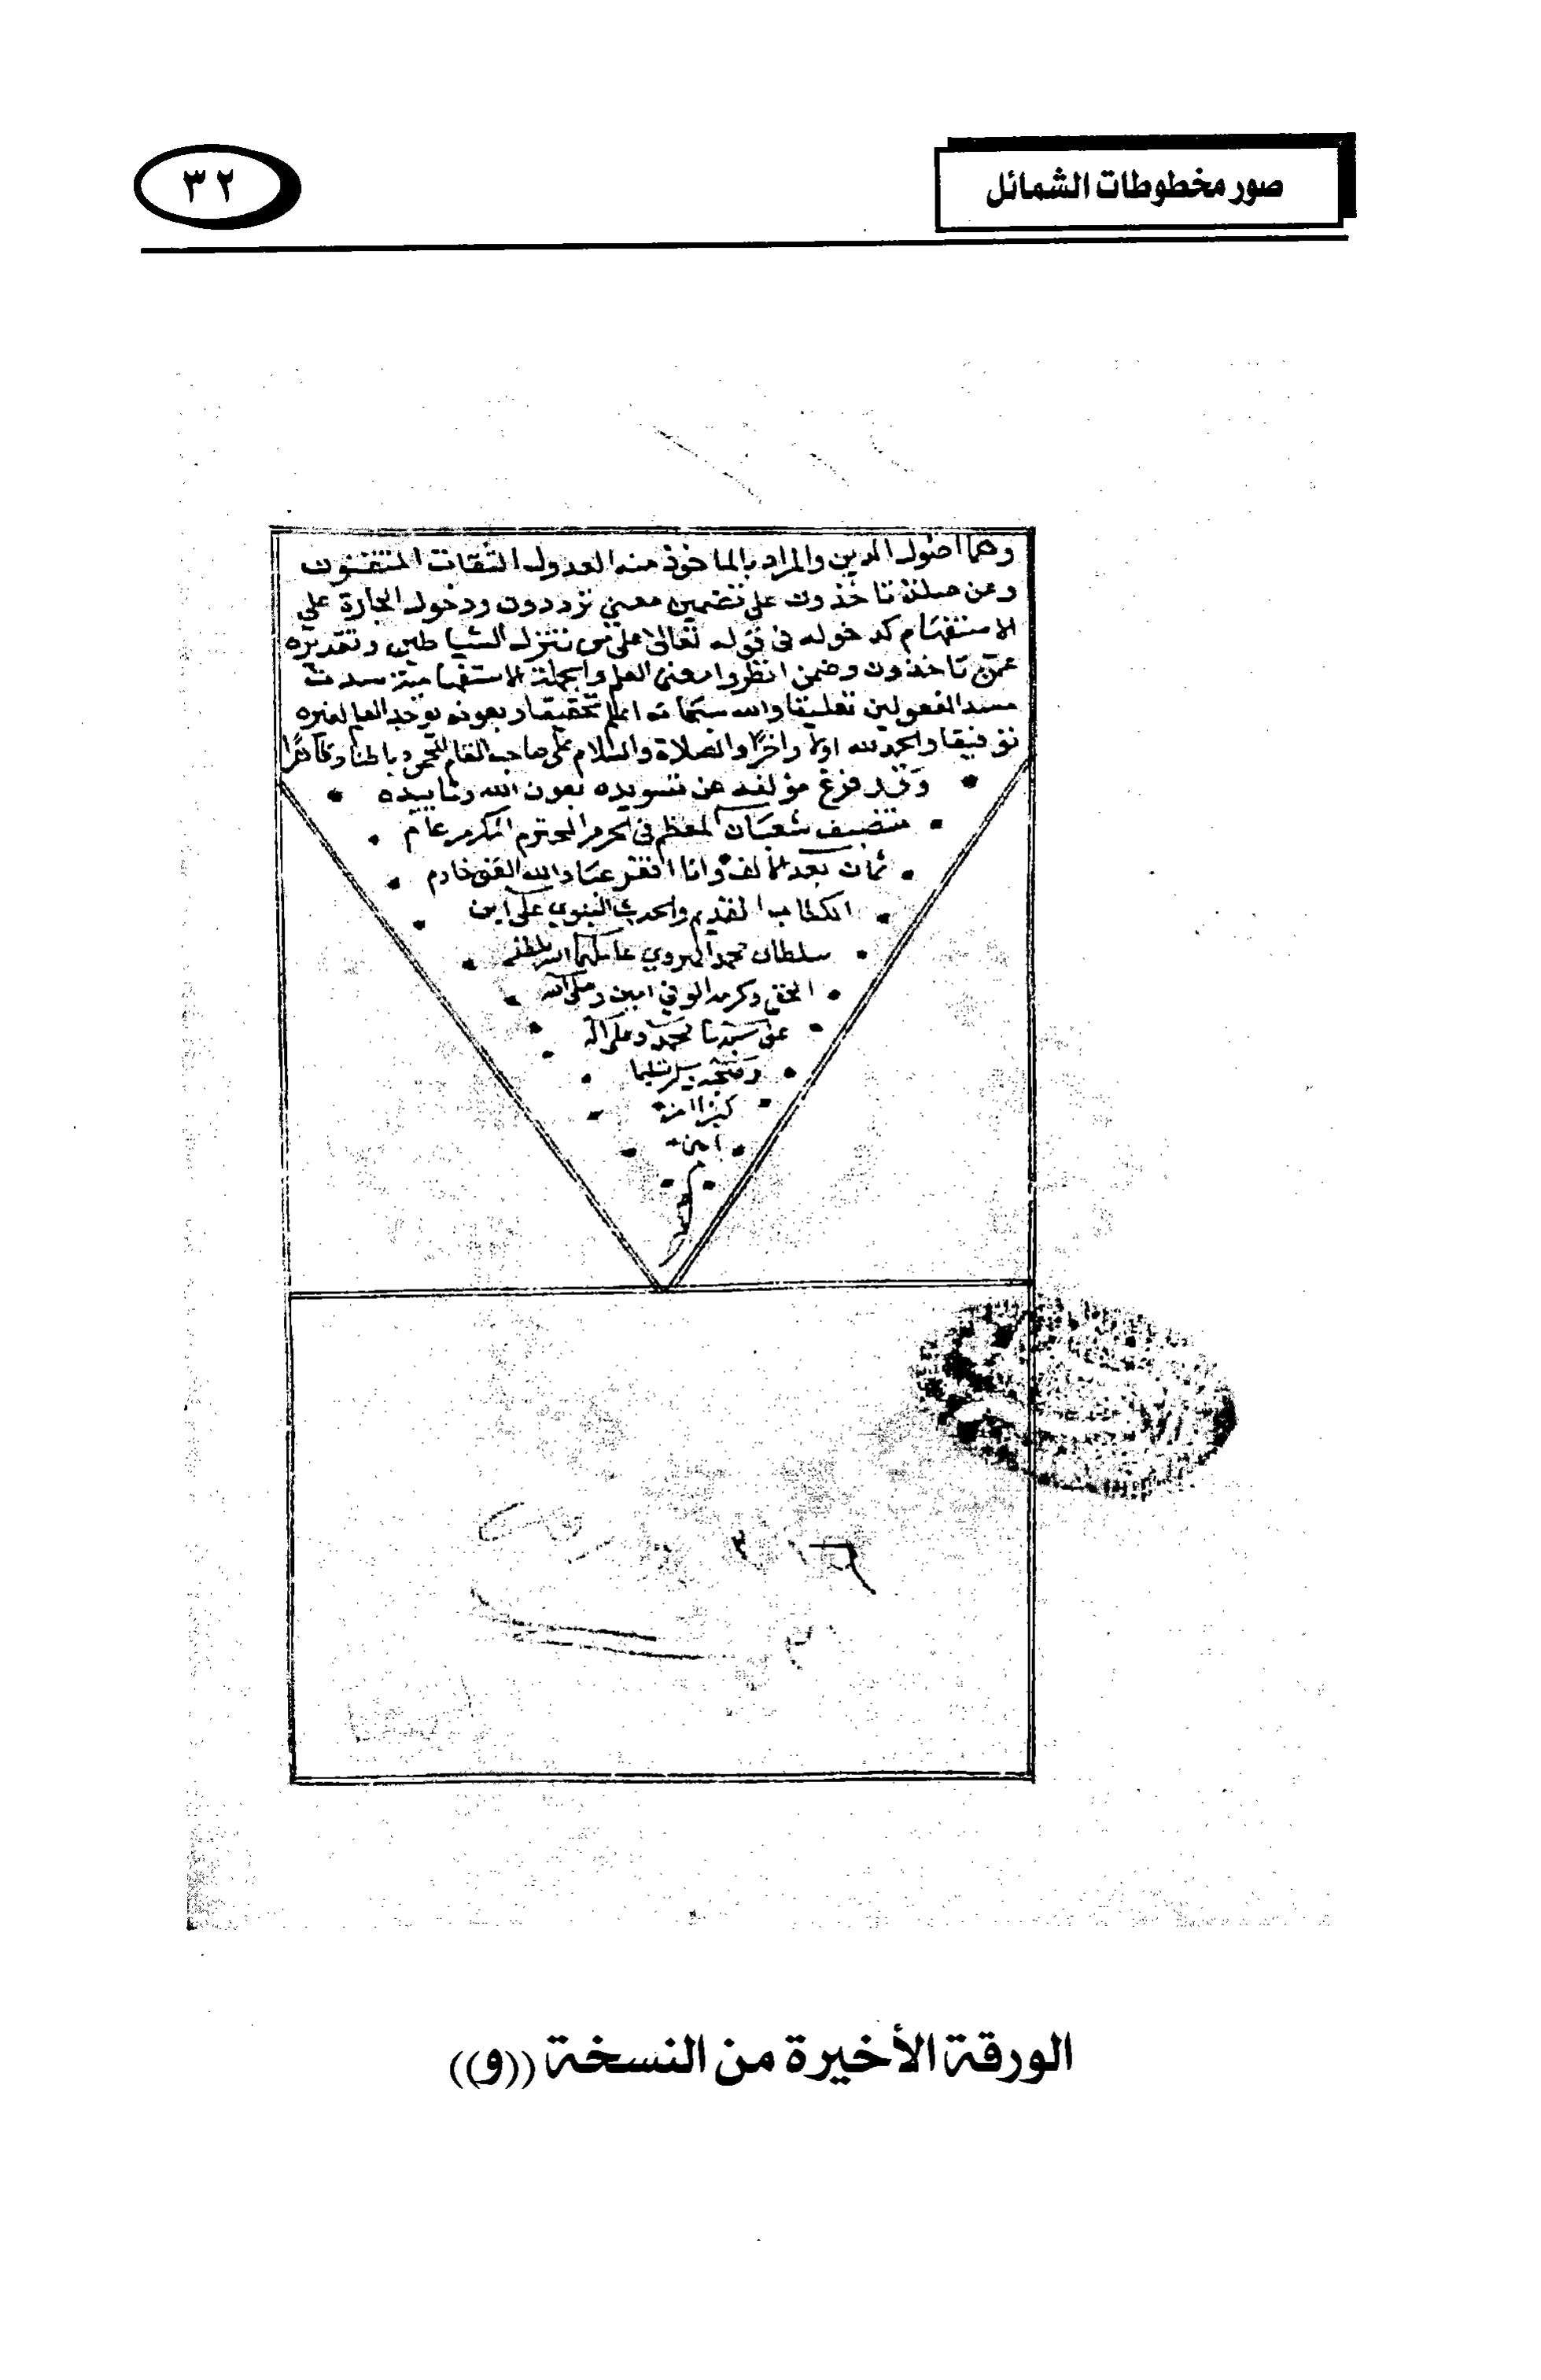 صور مخطوطات الشمائل
٣٢
وهما اصول الدين والمراد بالماخوذ منه العدول الثقات المتقنون
وعن صلة تاخذون على تضمين معنى تروون ودخول الجارة على
الاستفهام كدخوله في قوله تعالى على من تنزل الشياطين وتقديره
عمن تاخذون وضمن انظروا معنى العلم والجملة الاستفهامية سدت
مسد المفعولين تعليقا والله سبحانه اعلم تحقيقا وبعونه يوجد العالم لغيره
توفيقا والحمد لله اولا واخرا والصلاة والسلام على صاحب المقام المحمود باطنا وظاهرا
وقد فرغ مؤلفه عن تسويده بعون الله وتاييده
منتصف شعبان المعظم في الحرم المحترم المكرم عام
ثمان بعد الالف وانا افقر عباد الله الغني خادم
الكتاب القديم والحديث النبوي علي ابن
سلطان محمد الهروي عاملهما الله بلطفه
الخفي وكرمه الوفي امين وصلى الله
على سيدنا محمد وعلى اله
وصحبه وسلم تسليما
كثيرا
امين
الورقة الأخيرة من النسخة ((و))